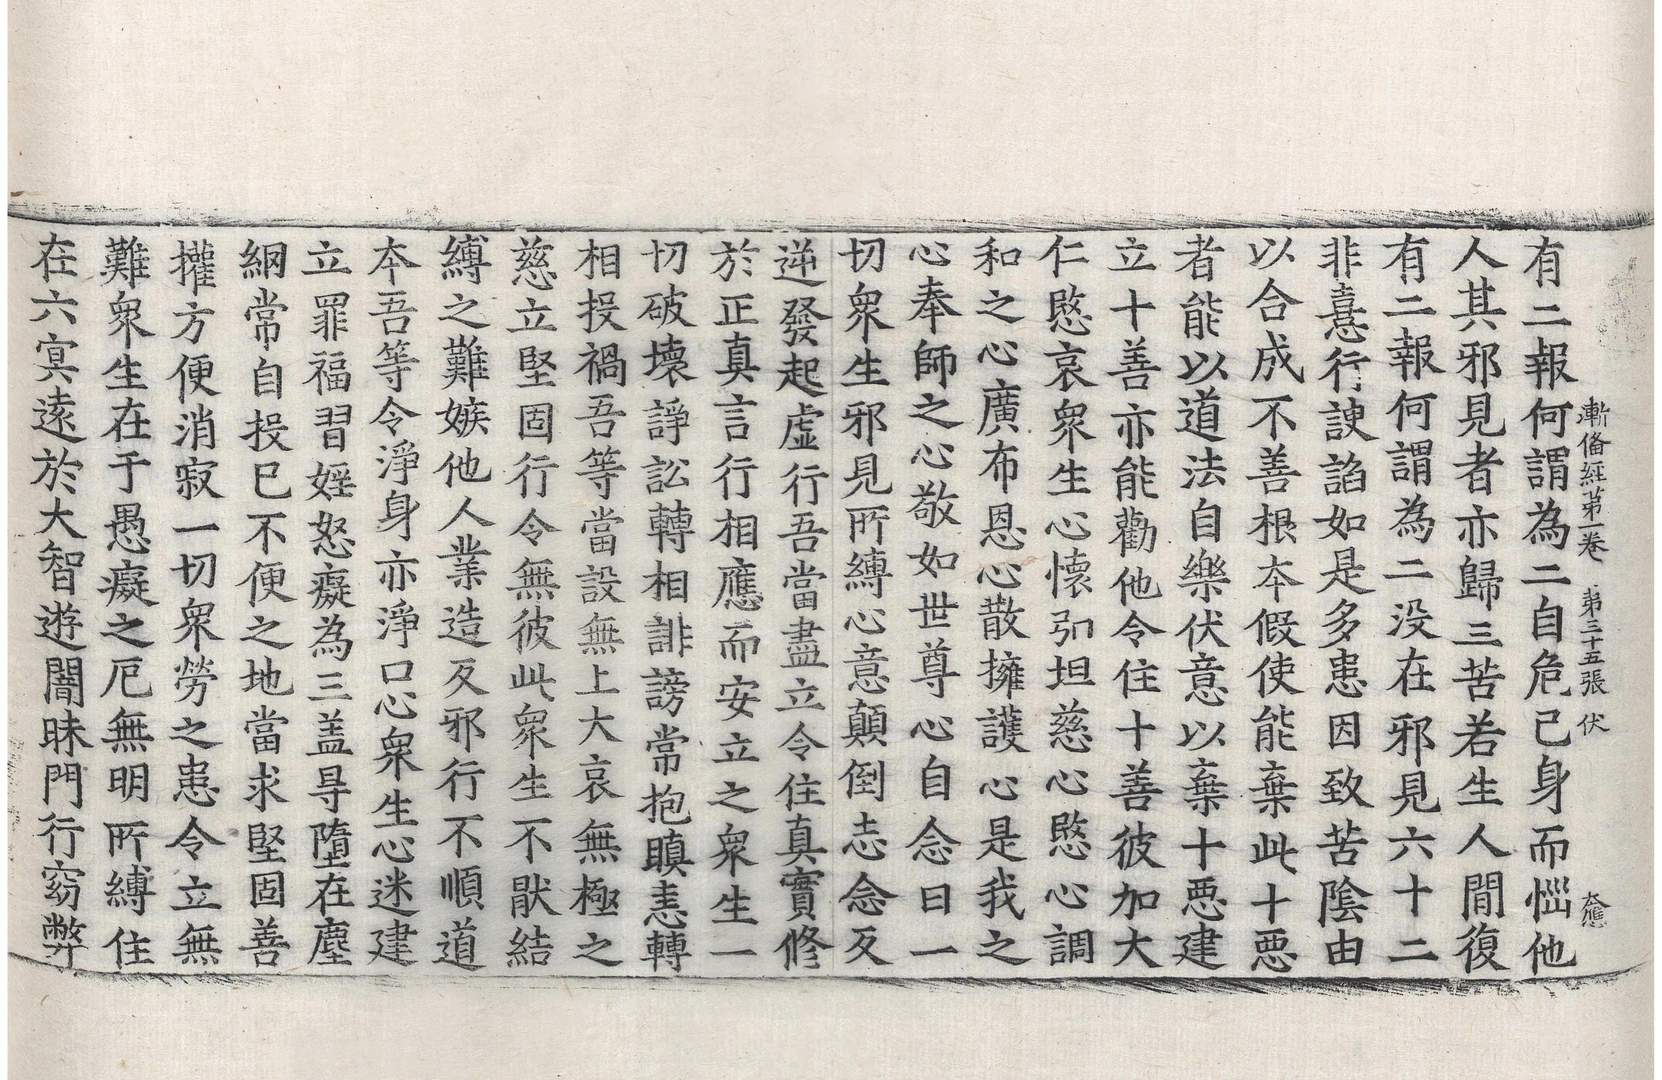 漸俻經第一卷　第三十五張　伏
有二報何謂為二自危己身而惱他
人其邪見者亦歸三苦若生人間復
有二報何謂為二没在邪見六十二
非憙行諛諂如是多患因致苦陰由
以合成不善根夲假使能棄此十惡
者能以道法自樂伏意以棄十惡建
立十善亦能勸他令住十善彼加大
仁愍哀衆生心懷弘坦慈心愍心調
和之心廣布恩心散擁護心是我之
心奉師之心敬如世尊心自念曰一
切衆生邪見所縛心意顛倒志念反
逆發起虛行吾當盡立令住真實修
於正真言行相應而安立之衆生一
切破壞諍訟轉相誹謗常抱瞋恚轉
相投禍吾等當設無上大哀無極之
慈立堅固行令無彼此衆生不猒結
縛之難嫉他人業造反邪行不順道
夲吾等令淨身亦淨口心衆生心迷建
立罪福習婬怒癡為三盖㝵墮在塵
網常自投已不便之地當求堅固善
攉方便消寂一切衆勞之患令立無
難衆生在于愚癡之厄無明所縛住
在六㝠遠於大智遊闇昧門行窈弊